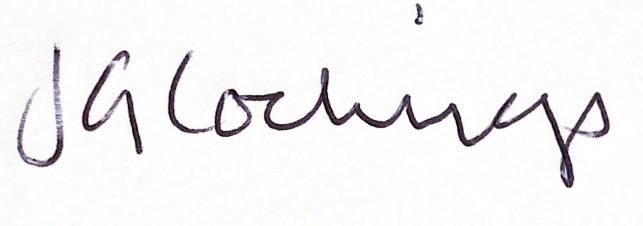 JA Cockings